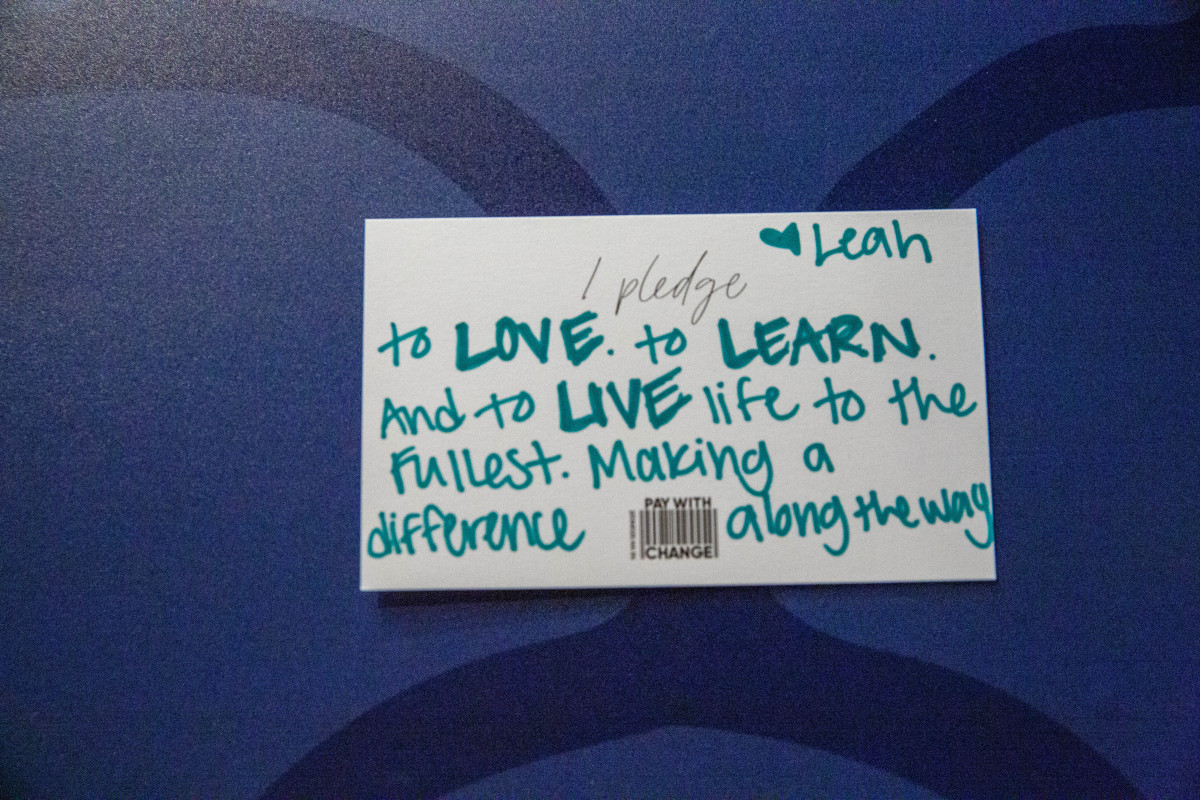 ♥ Leah
I pledge
to LOVE. to LEARN.
And to LIVE life to the
Fullest. Making a
difference along the way
PAY WITH
CHANGE